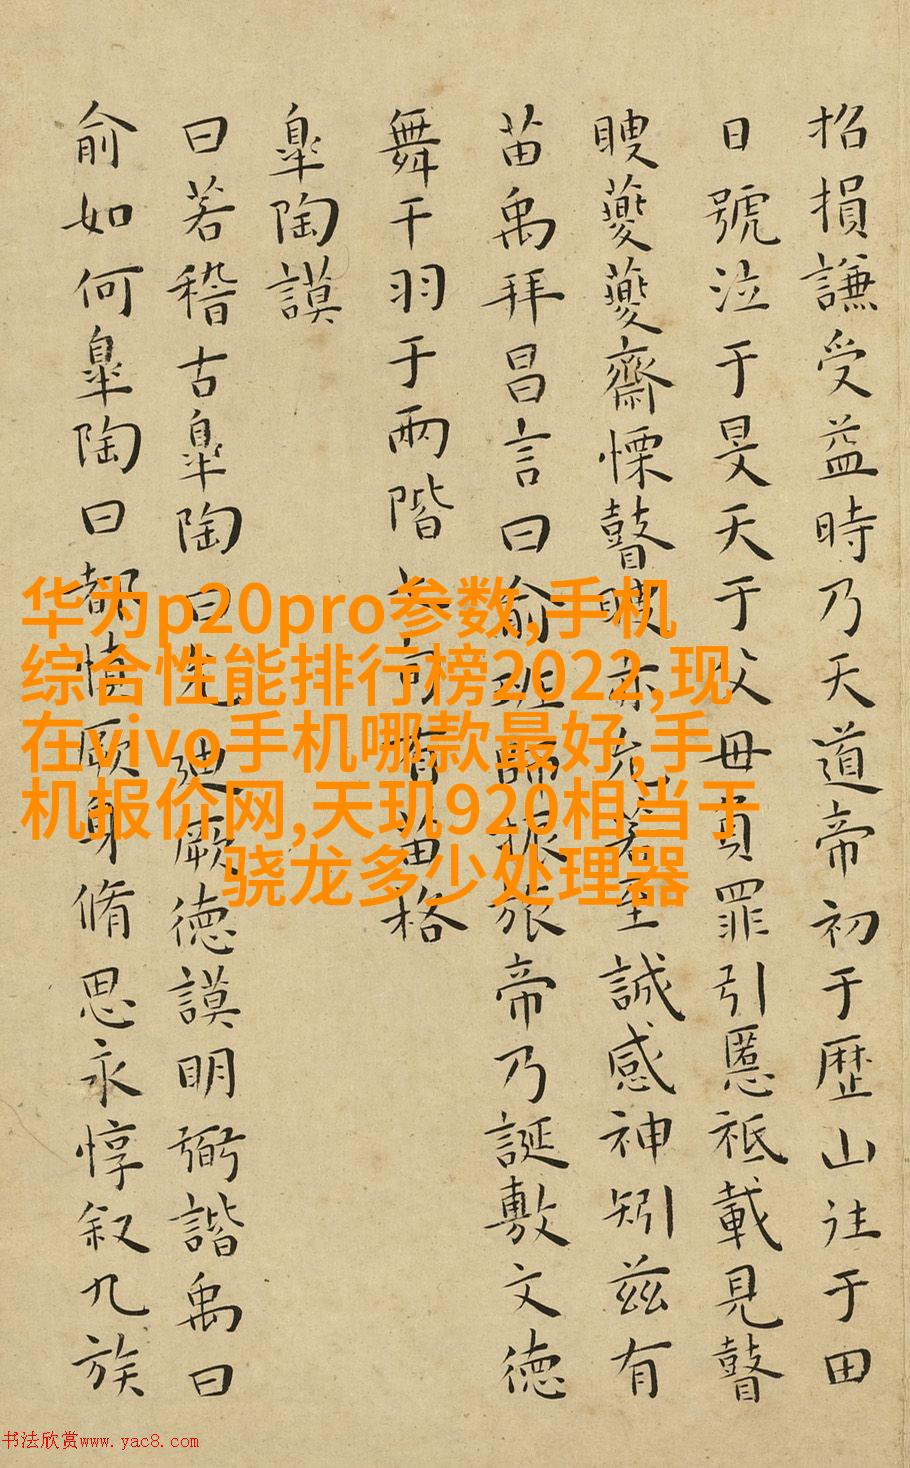 招損謙受益時乃天道帝初于歷山往于田
日號泣于旻天于父母負罪引慝祗載見瞽
瞍夔夔齋慄瞽瞍亦允若至諴感神矧茲有
苗禹拜昌言曰俞班師振旅帝乃誕敷文德
舞干羽于兩階七旬有苗格
皋陶謨
曰若稽古皋陶曰允迪厥德謨明弼諧禹曰
俞如何皋陶曰都慎厥身脩思永惇叙九族
华为p20pro参数,手机
综合性能排行榜2022,现
在vivo手机哪款最好,手
机报价网,天玑920相当于
骁龙多少处理器
书法欣赏www.yac8.com